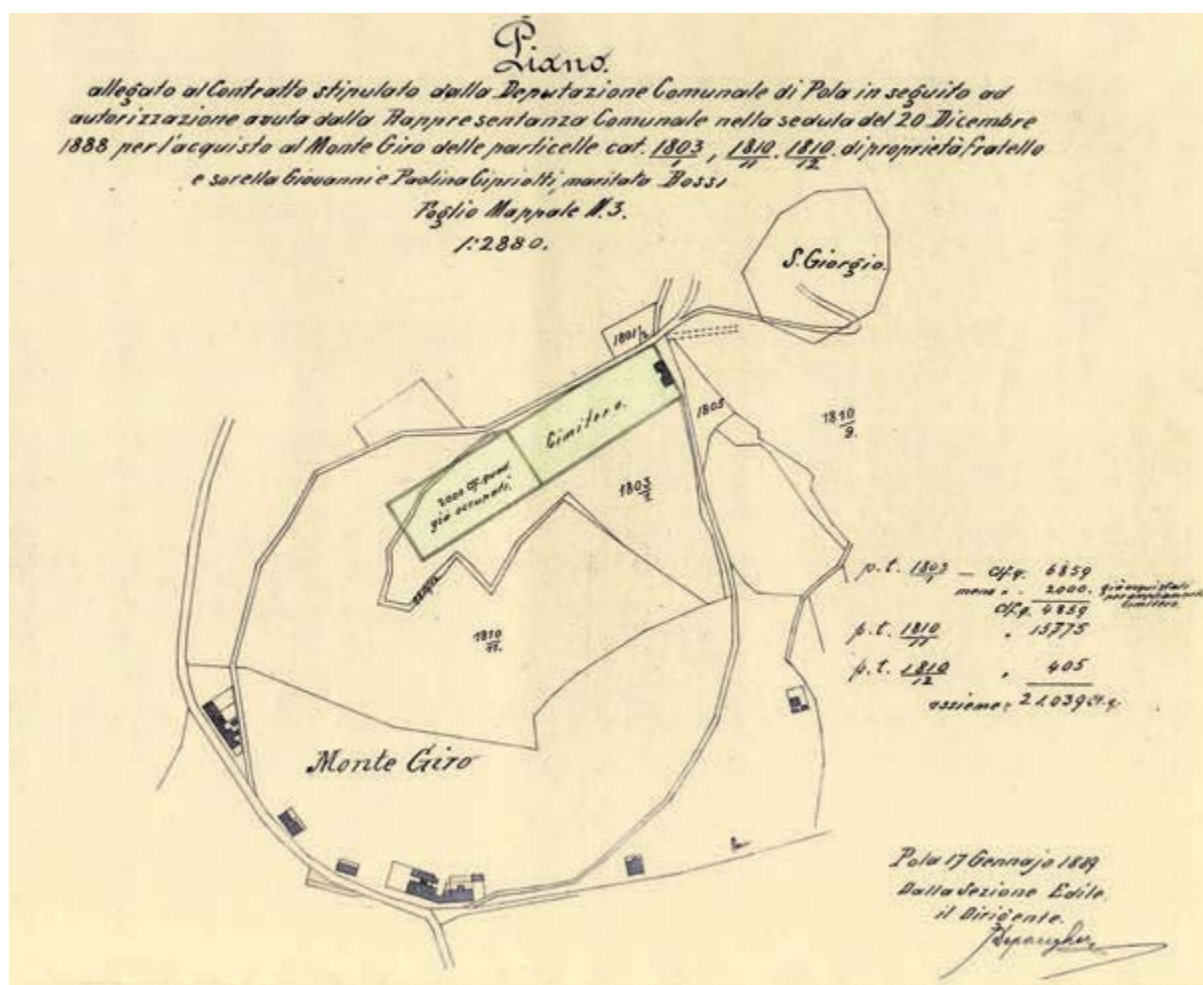 Piano.
allegato al Contratto stipulato dalla Deputazione Comunale di Pola in seguito ad
autorizzazione avuta dalla Rappresentanza Comunale nella seduta del 20 Dicembre
1888 per l'acquisto al Monte Giro delle particelle cat. 1803/1, 1810/11, 1810/12 di proprietà fratello
e sorella Giovanni e Paolina Cipriotti, maritata Bossi
Foglio Mappale N. 3.
1:2880.
S. Giorgio.
1801/2
Cimitero.
1805
1810/9.
2000 quad.
già occupati.
1803/1
1810/11.
p.t. 1803/1 — 6859
meno 2000. già acquistati
per ampliamento
Cimitero.
4859
p.t. 1810/11 " 15775
p.t. 1810/12 " 405
assieme: 21.039
Monte Giro
Pola 17 Gennajo 1889
Dalla Sezione Edile.
il Dirigente.